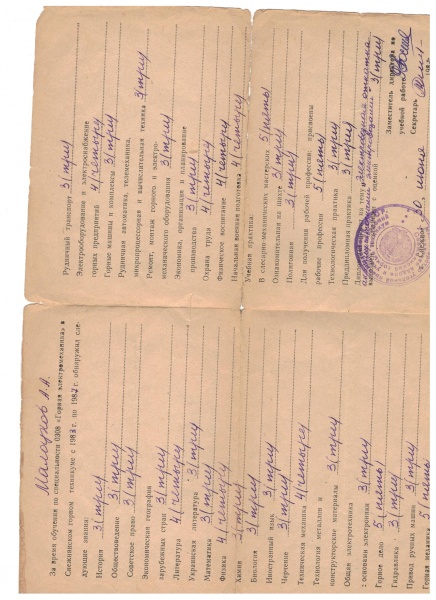 Малоухов А.А.
За время обучения по специальности 0308 «Горная электромеханика» в
Снежнянском горном техникуме с 1983 г. по 1987 г. обнаружил сле-
дующие знания:
История 3(три)
Обществоведение 3(три)
Советское право 3(три)
Экономическая география
зарубежных стран 3(три)
Литература 4(четыре)
Украинская литература 3(три)
Математика 3(три)
Физика 4(четыре)
Химия 3(три)
Биология 3(три)
Иностранный язык 3(три)
Черчение 3(три)
Техническая механика 4(четыре)
Технология металлов и
конструкторские материалы 3(три)
Общая электротехника
с основами электроники 3(три)
Горное дело 5(пять)
Гидравлика 3(три)
Привод ручных машин 3(три)
Горная механика 5(пять
Рудничный транспорт 3(три)
Электрооборудование и электроснабжение
горных предприятий 4(четыре)
Горные машины и комплексы 3(три)
Рудничная автоматика, телемеханика,
микропроцессорная и вычислительная техника 3(три)
Ремонт, монтаж горного и электро-
механического оборудования 4(четыре)
Экономика, организация и планирование
производства 3(три)
Охрана труда 4(четыре)
Физическое воспитание 4(четыре)
Начальная военная подготовка 4(четыре)
Учебная практика:
В слесарно-механических мастерских 5(пять)
Ознакомительная на шахте 3(три)
Полигонная 3(три)
Для получения рабочей профессии, присвоены
рабочие профессии 5(пять)
Технологическая практика 3(три)
Преддипломная практика 3(три)
на тему электровозная откатка
с оценкой 3(три)
Заместитель директора по
учебной работе
Секретарь
30 июня 198